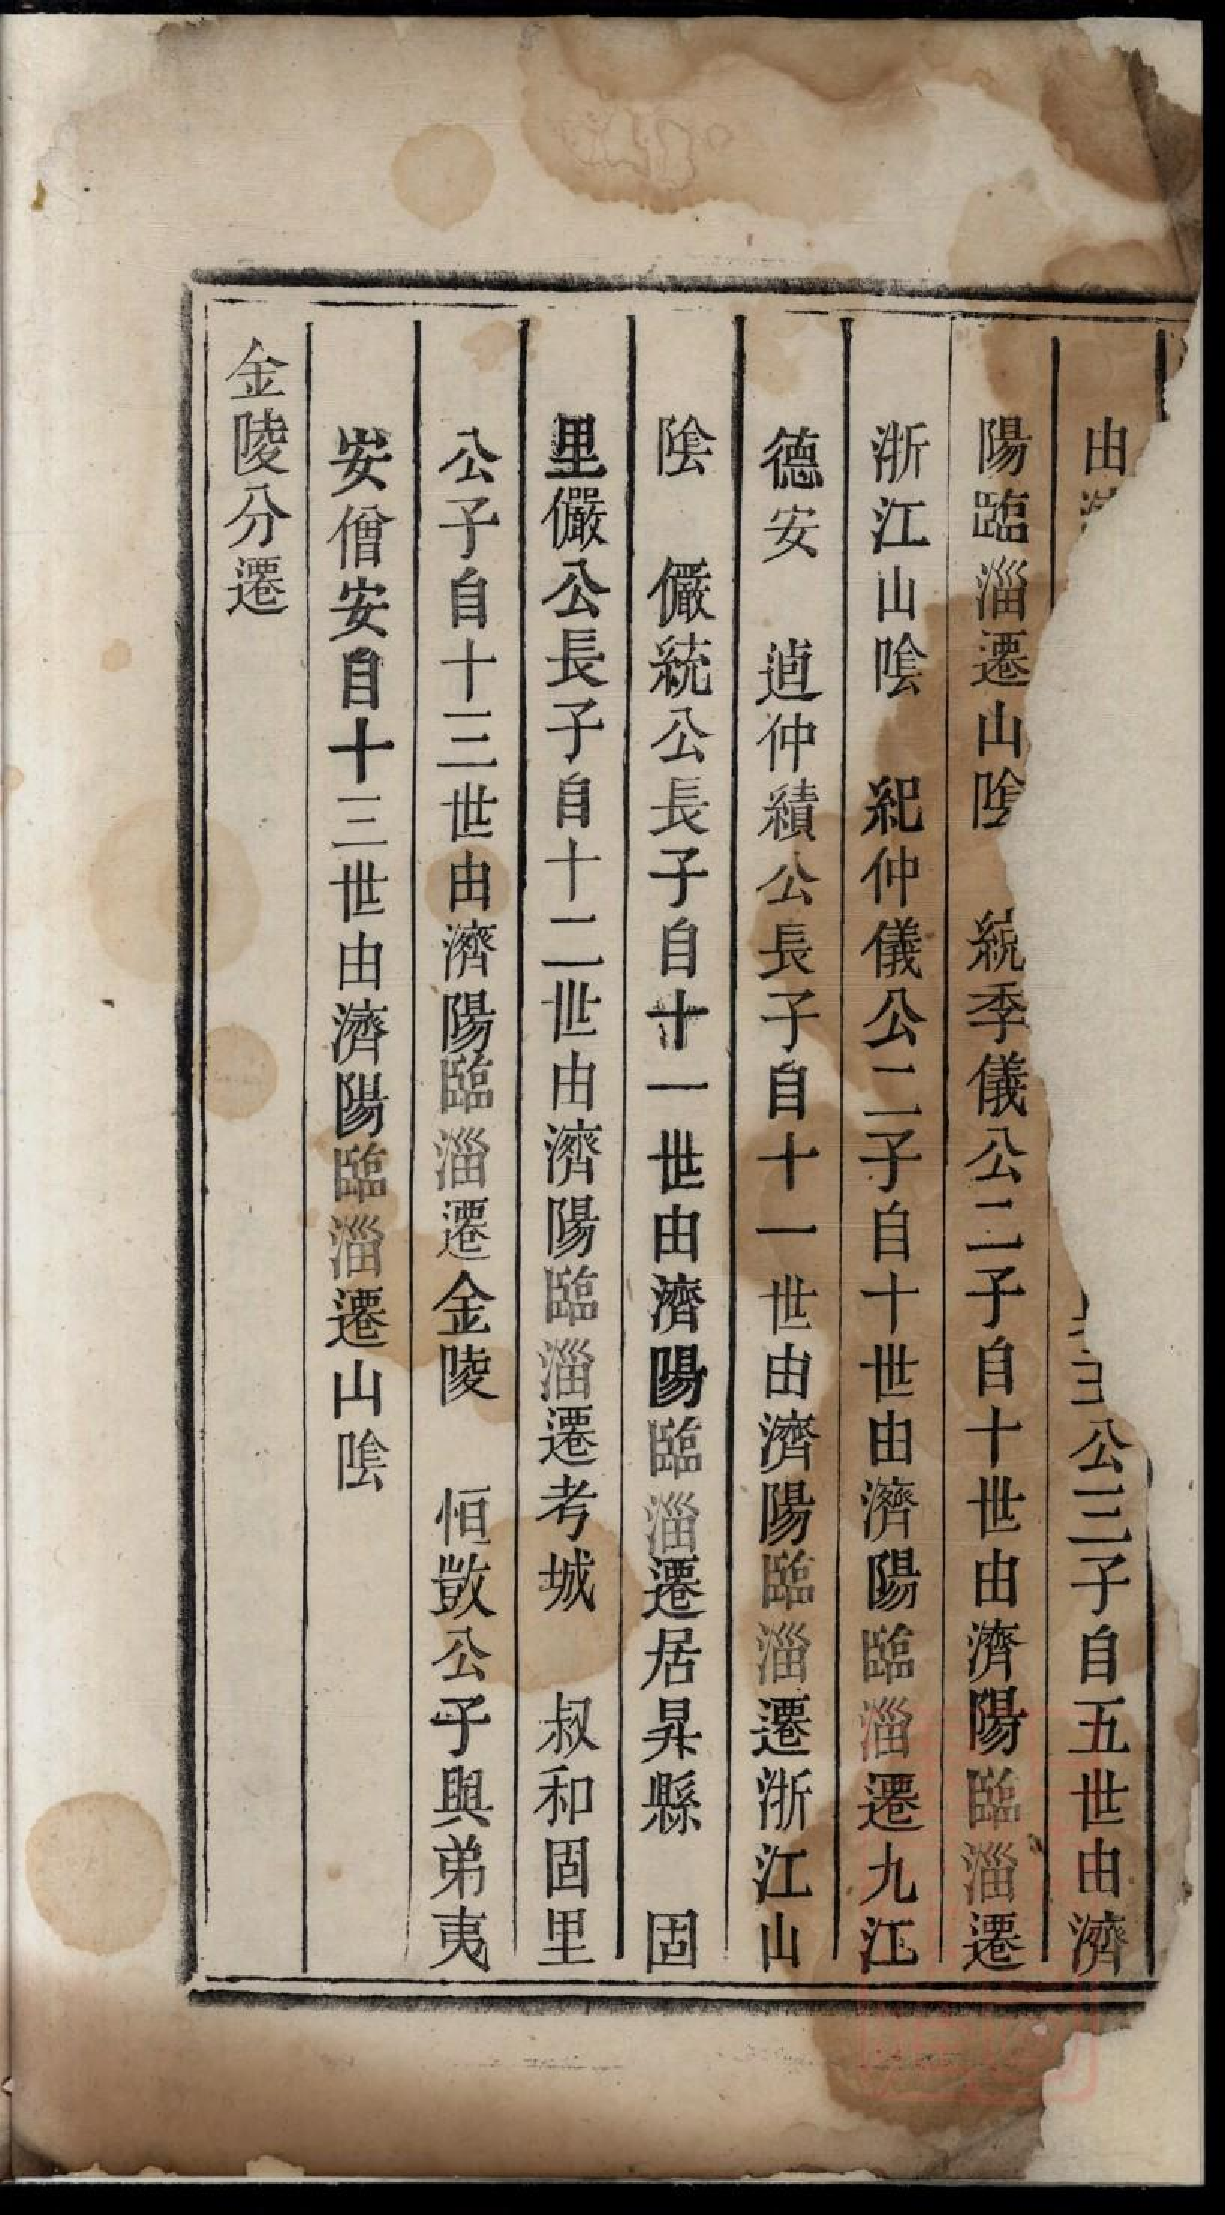 由濟公三子自五世由濟
陽臨淄遷山陰　統季儀公二子自十世由濟陽臨淄遷
浙江山陰　紀仲儀公二子自十世由濟陽臨淄遷九江
德安　逌仲績公長子自十一世由濟陽臨淄遷浙江山
陰　儼統公長子自十一世由濟陽臨淄遷居昇縣　固
里儼公長子自十二世由濟陽臨淄遷考城　叔和固里
公子自十三世由濟陽臨淄遷金陵　恒敳公子與弟夷
安僧安自十三世由濟陽臨淄遷山陰
金陵分遷